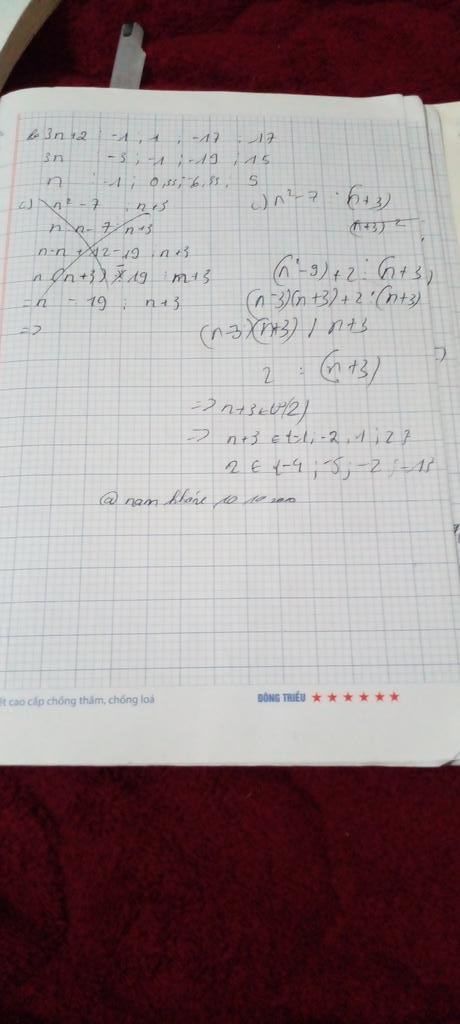 b 3n+2 : -1 ; 1 ; -17 ; 17
3n -3 ; -1 ; -19 ; 15
n -1 ; 0,33 ; 6,33 ; 5
c) n² - 7 ⋮ n+3
n·n - 7 ⋮ n+3
n(n+3) 19 ⋮ n+3
= n - 19 ; n+3
=>
c) n² - 7 ⋮ (n+3)
(n+3) 2
(n² - 9) + 2 ⋮ (n+3)
(n-3)(n+3) + 2 ⋮ (n+3)
(n-3)(n+3) ⋮ n+3
2 ⋮ (n+3)
=> n+3 ∈ Ư(2)
=> n+3 ∈ {-1, -2, 1 ; 2}
n ∈ {-4 ; -5 ; -2 ; -1}
@ nam
ết cao cấp chống thấm, chống loá
ĐÔNG TRIỀU ★ ★ ★ ★ ★ ★